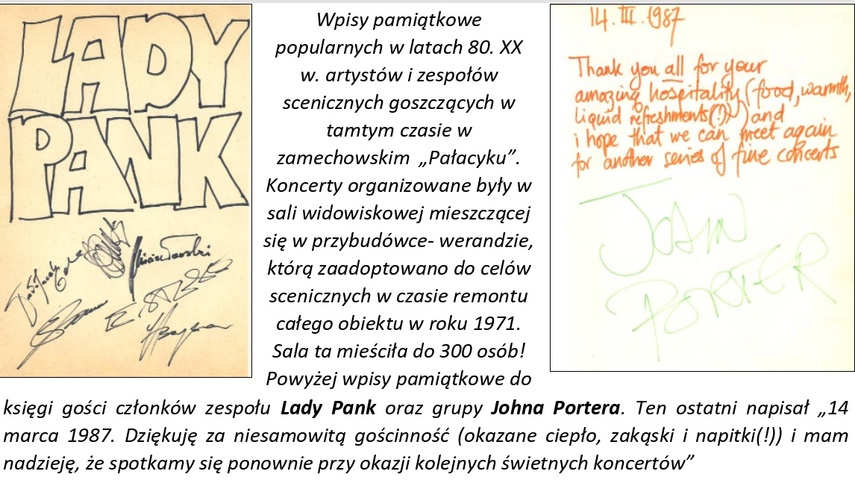 LADY
PANK
Wpisy pamiątkowe
popularnych w latach 80. XX
w. artystów i zespołów
scenicznych goszczących w
tamtym czasie w
zamechowskim „Pałacyku”.
Koncerty organizowane były w
sali widowiskowej mieszczącej
się w przybudówce- werandzie,
którą zaadoptowano do celów
scenicznych w czasie remontu
całego obiektu w roku 1971.
Sala ta mieściła do 300 osób!
Powyżej wpisy pamiątkowe do
14. III. 1987
Thank you all for your
amazing hospitality (food, warmth,
liquid refreshments(!)) and
i hope that we can meet again
for another series of fine concerts
JOHN
PORTER
księgi gości członków zespołu Lady Pank oraz grupy Johna Portera. Ten ostatni napisał „14
marca 1987. Dziękuję za niesamowitą gościnność (okazane ciepło, zakąski i napitki(!)) i mam
nadzieję, że spotkamy się ponownie przy okazji kolejnych świetnych koncertów”